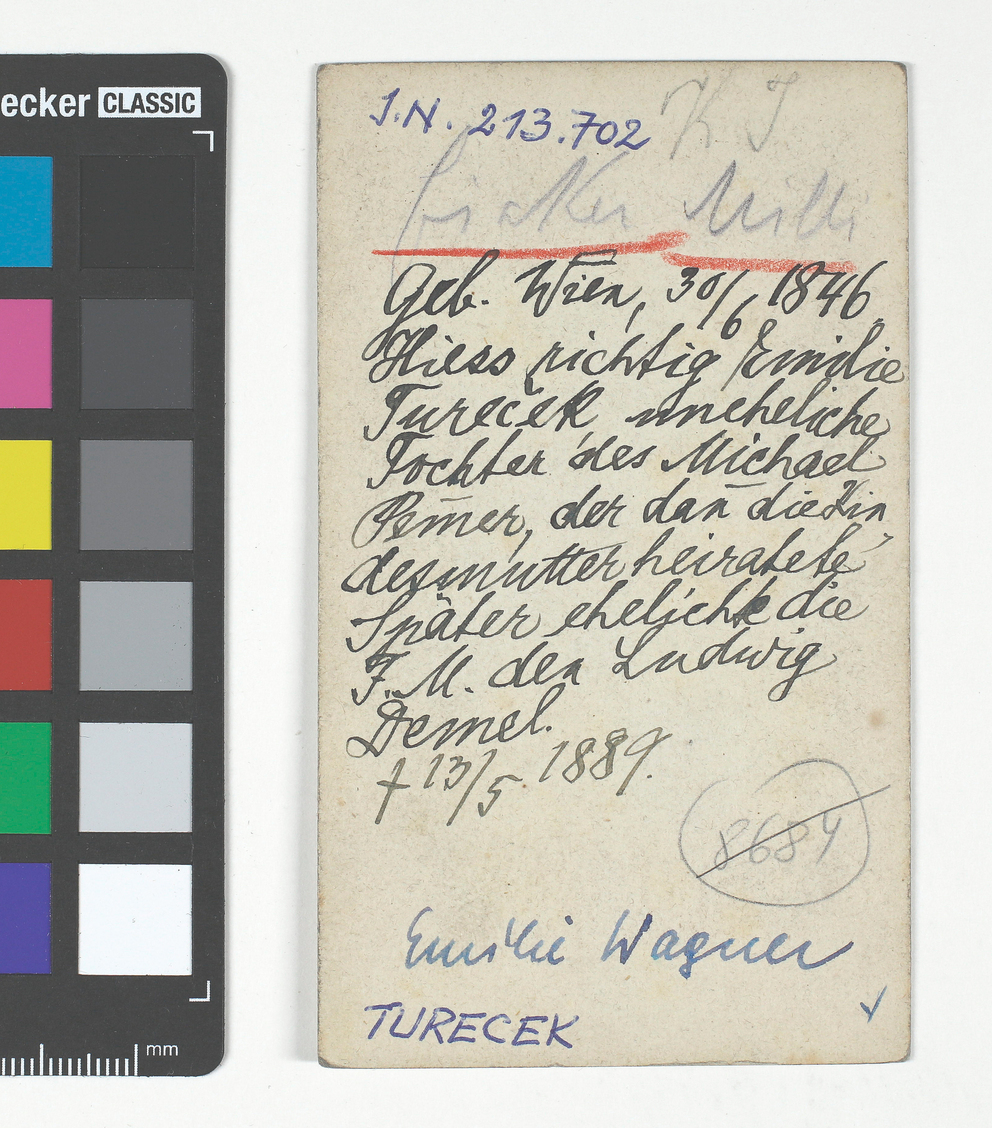 ecker CLASSIC
J.N. 213.702
K J.
Milli
Geb. Wien, 30/6 1846.
Hiess richtig Emilie
Turecĕk uneheliche
Tochter des Michael
Pem̄er, der dan̄ die Kin
desmutter heiratete
Später ehelichte die
F. M. den Ludwig
Demel.
† 13/5 1889.
8684
Emilie Wagner
TURECEK
mm